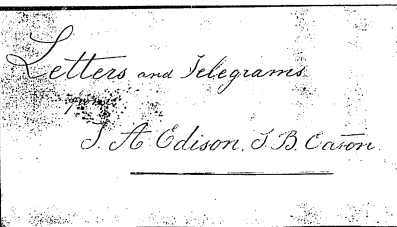 Letters and Telegrams
T. A. Edison, T. B. Eason.